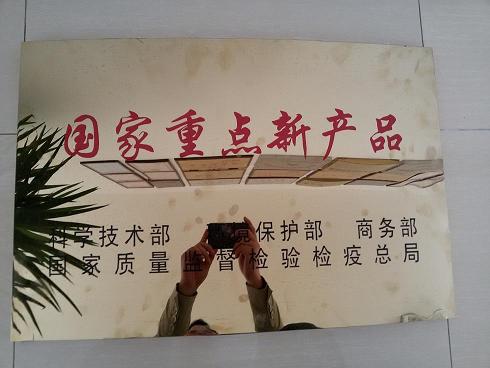 国家重点新产品
科学技术部 环境保护部 商务部
国家质量监督检验检疫总局